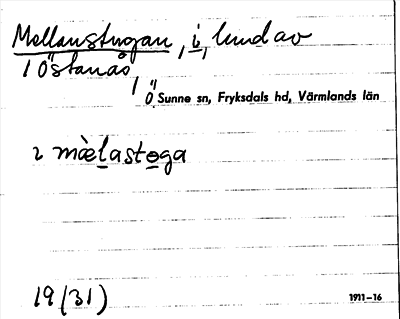 Mellanstugan, i, lund av
1 Östanås,
Ö Sunne sn, Fryksdals hd, Värmlands län
2 mæ̀lastoga
19 (31)
1911–16